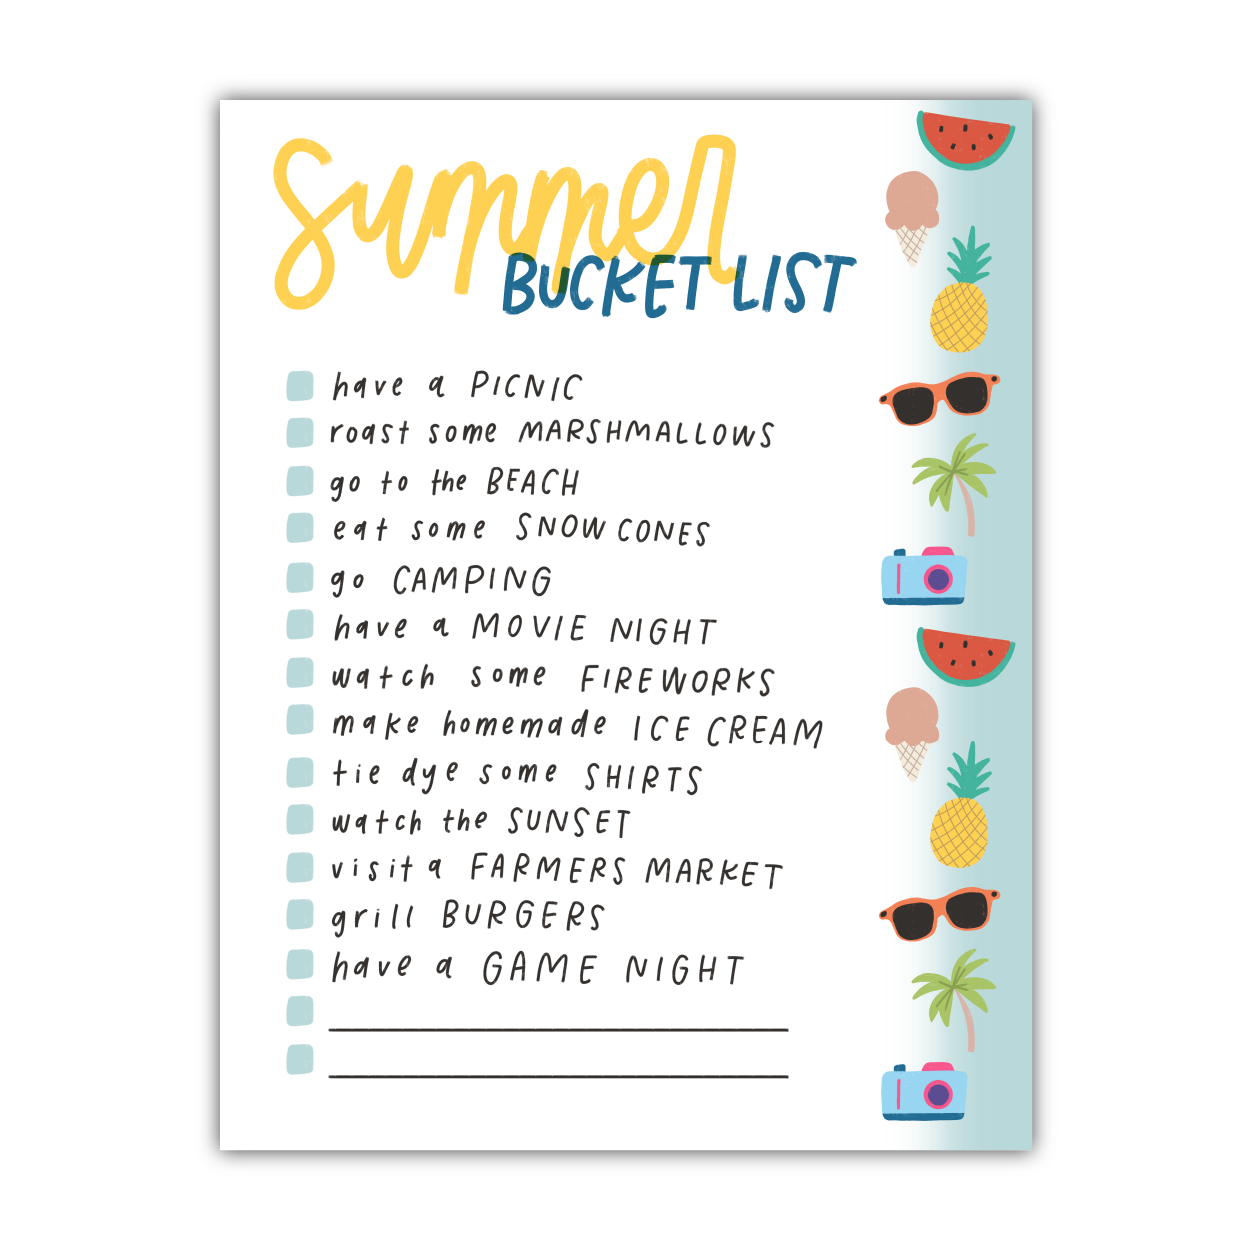 summer
BUCKET LIST
have a PICNIC
roast some MARSHMALLOWS
go to the BEACH
eat some SNOW CONES
go CAMPING
have a MOVIE NIGHT
watch some FIREWORKS
make homemade ICE CREAM
tie dye some SHIRTS
watch the SUNSET
visit a FARMERS MARKET
grill BURGERS
have a GAME NIGHT